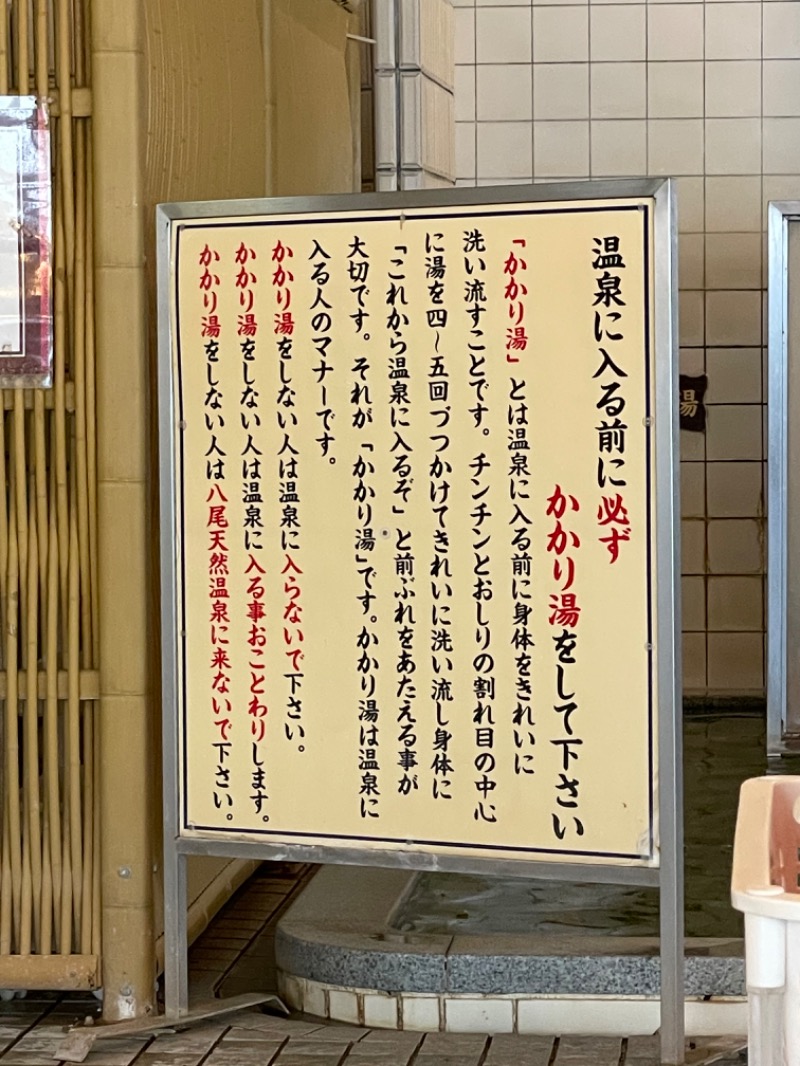 温泉に入る前に必ず
かかり湯をして下さい
「かかり湯」とは温泉に入る前に身体をきれいに
洗い流すことです。チンチンとおしりの割れ目の中心
に湯を四〜五回づつかけてきれいに洗い流し身体に
「これから温泉に入るぞ」と前ぶれをあたえる事が
大切です。それが「かかり湯」です。かかり湯は温泉に
入る人のマナーです。
かかり湯をしない人は温泉に入らないで下さい。
かかり湯をしない人は温泉に入る事おことわりします。
かかり湯をしない人は八尾天然温泉に来ないで下さい。
湯